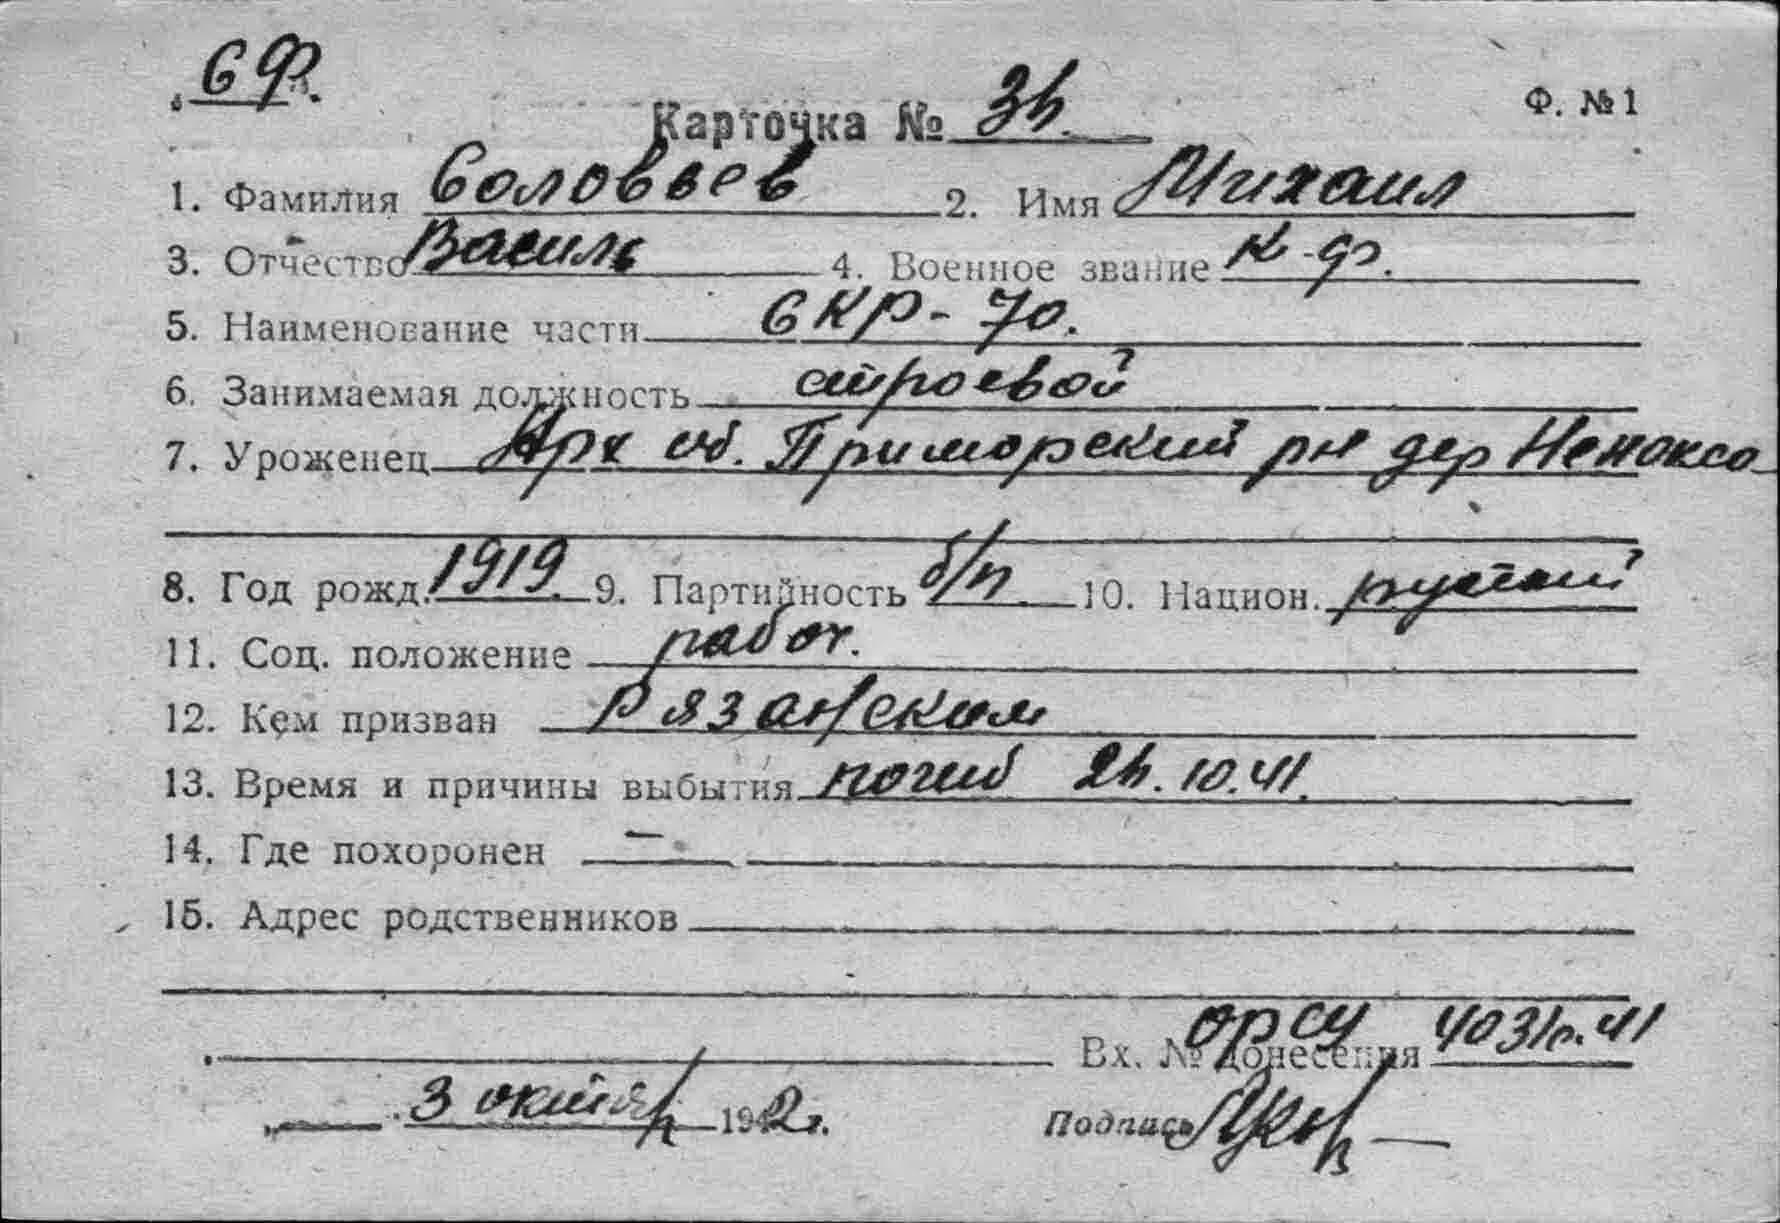 СФ.
Ф. №1
Карточка № 34.
1. Фамилия Соловьев 2. Имя Михаил
3. Отчество Василь 4. Военное звание к-ф.
5. Наименование части СКР-70.
6. Занимаемая должность строевой
7. Уроженец Арх об. Приморский рн дер Неноксо
8. Год рожд. 1919. 9. Партийность б/п. 10. Национ. русский
11. Соц. положение рабоч.
12. Кем призван Рязанским
13. Время и причины выбытия погиб 24.10.41.
14. Где похоронен —
15. Адрес родственников
Вх. № донесения ОРСУ 41
3 октяб 1942г. Подпись